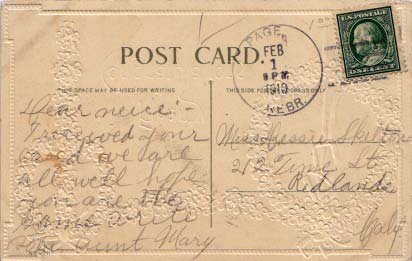 POST CARD.
THIS SPACE MAY BE USED FOR WRITING
THIS SIDE FOR
PAGE,
FEB
1
8 PM
1910
NEBR.
U.S. POSTAGE
ONE CENT
Dear neice:-
I received your
card we are
all well hope
you are the
same write
soon Aunt Mary
Miss Bessie Skelton
212 Time St.
Redlands
Calif